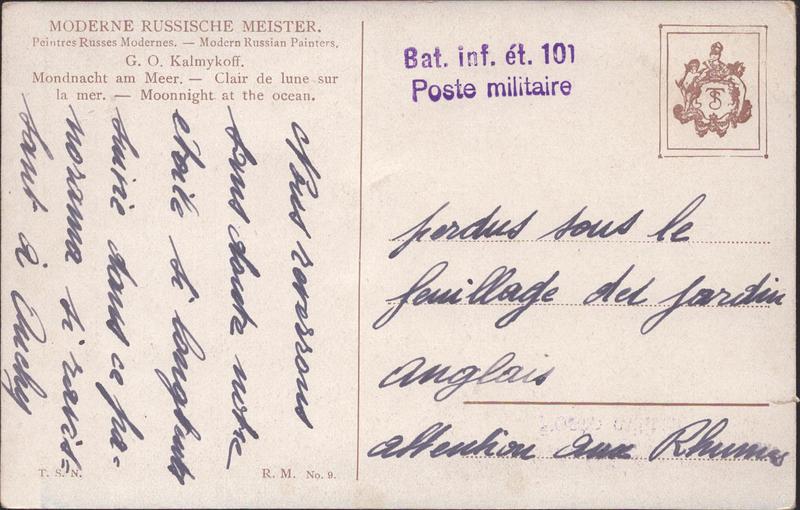 MODERNE RUSSISCHE MEISTER.
Peintres Russes Modernes. — Modern Russian Painters.
G. O. Kalmykoff.
Mondnacht am Meer. — Clair de lune sur
la mer. — Moonnight at the ocean.
Nous reverrons
sans doute notre
étoile si longtemps
suivie dans ce pa-
norama si ravis-
sant à Ouchy
T. S. N.
R. M. No. 9.
Bat. inf. ét. 101
Poste militaire
TS
perdus sous le
feuillage del jardin
anglais
attention aux Rhumes